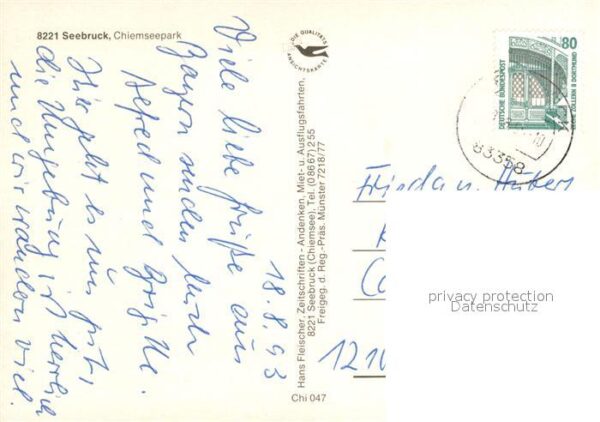 8221 Seebruck, Chiemseepark
Viele liebe Grüße aus
Bayern senden Euch
Alfred und Brigitte.
Hier geht es uns gut,
die Umgebung ist herrlich
und wir wandern viel.
18.8.93
DIE QUALITÄTS
ANSICHTSKARTE
Hans Fleischer, Zeitschriften - Andenken, Miet- u. Ausflugsfahrten,
8221 Seebruck (Chiemsee), Tel. (0 86 67) 2 55
Freigeg. d. Reg.-Präs. Münster 7218/77
Chi 047
80
DEUTSCHE BUNDESPOST
ZECHE ZOLLERN II DORTMUND
83358
Frieda u. Hubert
privacy protection
Datenschutz
1210